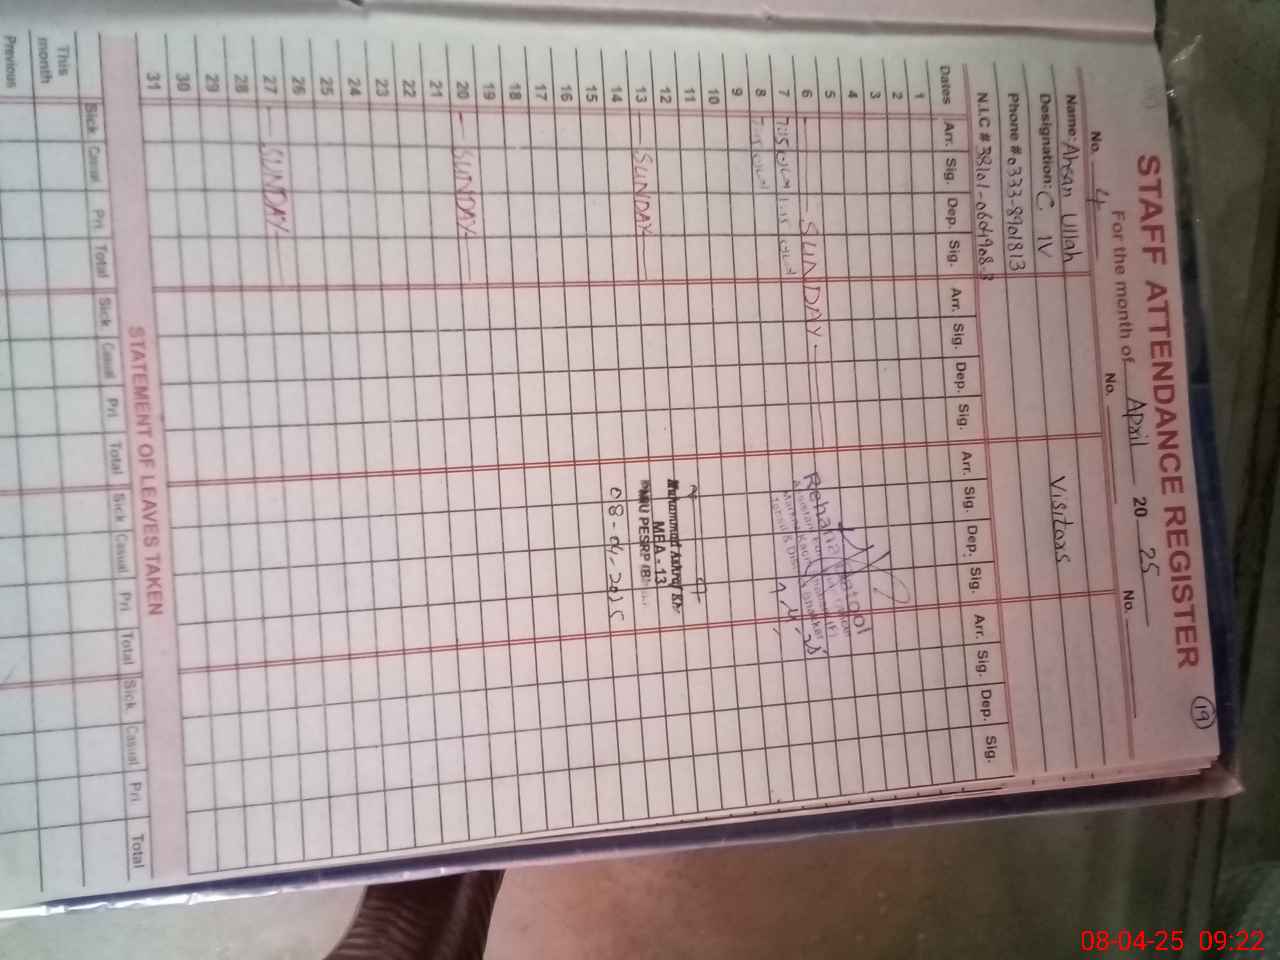 19
STAFF ATTENDANCE REGISTER
For the month of April 20 25
No. 4 No. No.
Name: Ahsan Ullah
Designation: C IV Visitors
Phone # 0333-8901813
N.I.C # 38101-0604908-3
Dates Arr. Sig. Dep. Sig. Arr. Sig. Dep. Sig. Arr. Sig. Dep. Sig. Arr. Sig. Dep. Sig.
1
2
3
4
5
6 SUNDAY
Rehana Batool
7 7:15 1:15
8
9
10
11
12
Muhammad Ashraf
MEA - 13
13 SUNDAY
PMIU PESRP
14 08-04-2025
15
16
17
18
19
20 SUNDAY
21
22
23
24
25
26
27 SUNDAY
28
29
30
31
STATEMENT OF LEAVES TAKEN
Sick Casual Pri Total Sick Casual Pri Total Sick Casual Pri Total Sick Casual Pri Total
This month
Previous
08-04-25 09:22